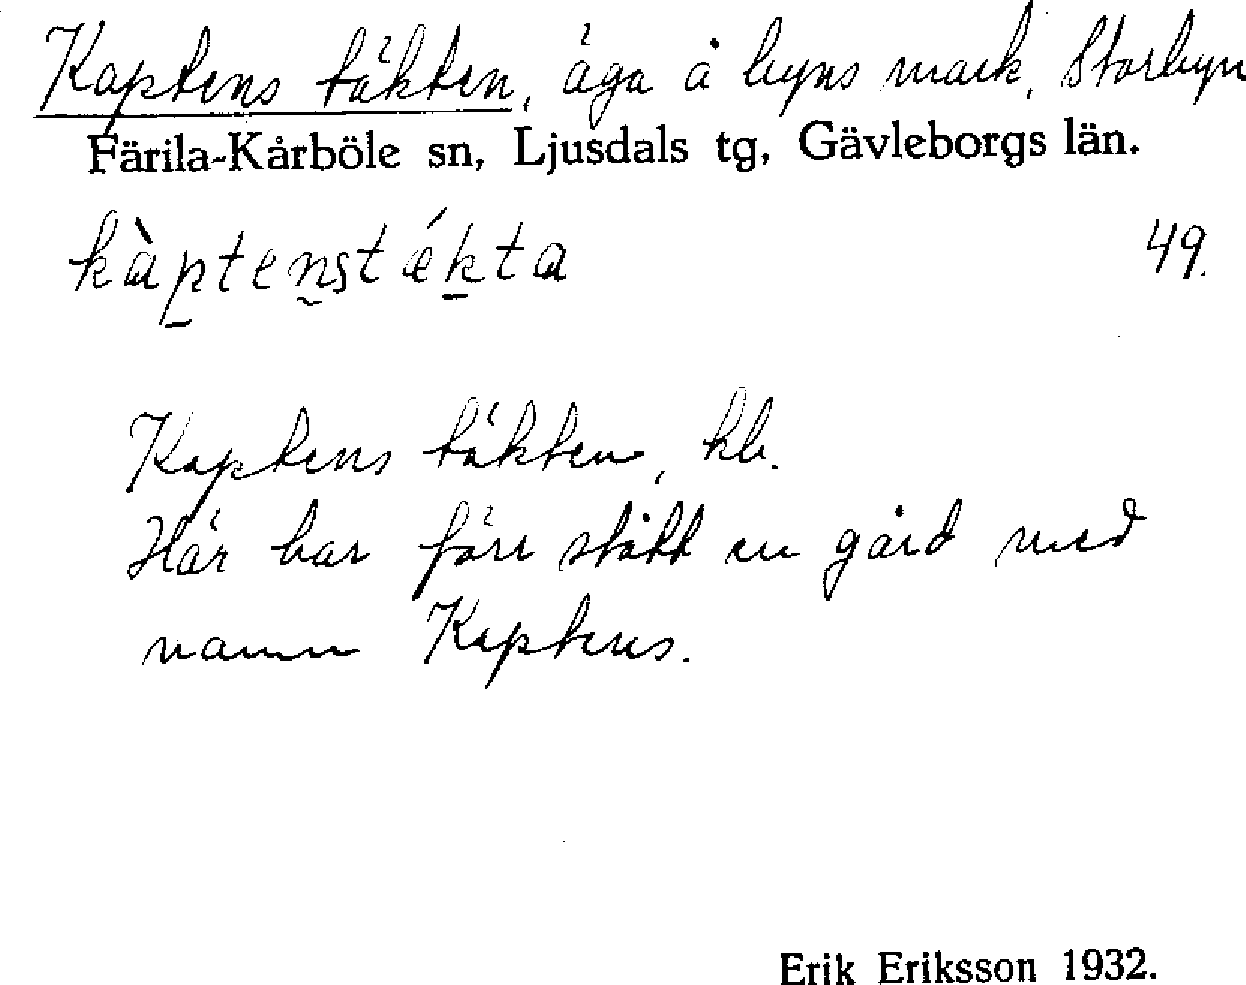 Kaptens täkten, äga å byns mark, Storbyn
Färila-Kårböle sn, Ljusdals tg, Gävleborgs län.
kàptenstǽkta 49.
Kaptens täkten, kb.
Här har förr stått en gård med
namn Kaptens.
Erik Eriksson 1932.